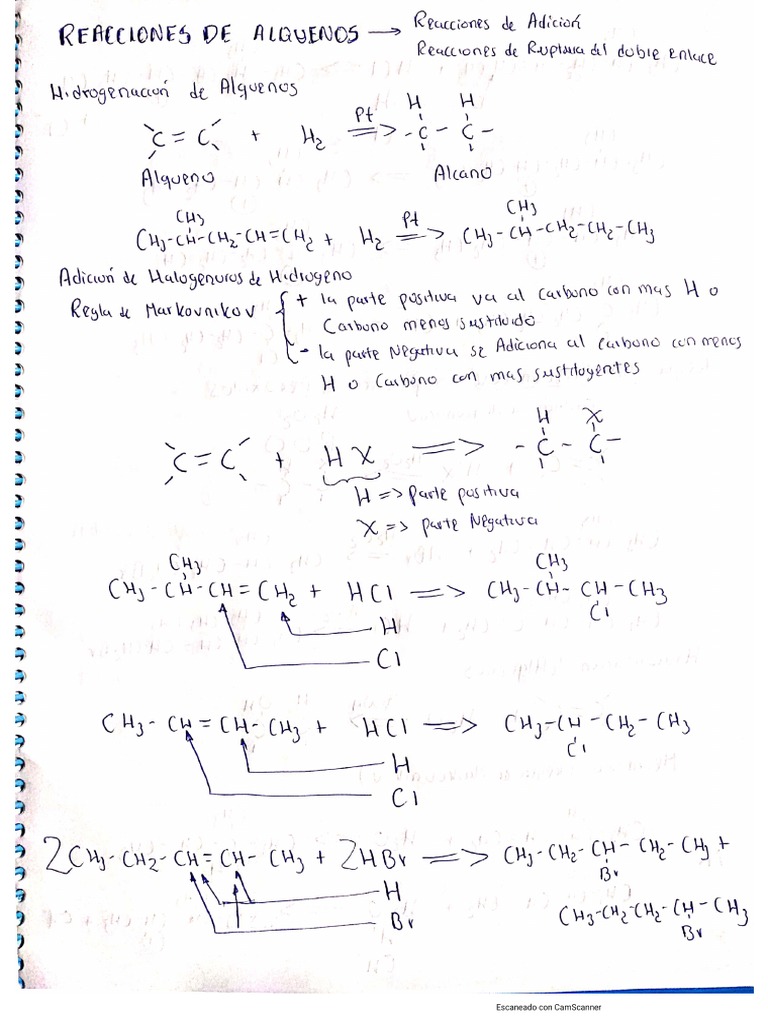 REACCIONES DE ALQUENOS → Reacciones de Adición
Reacciones de Ruptura del doble enlace
Hidrogenación de Alquenos
C = C + H2 Pt => - C - C -
H H
Alqueno Alcano
CH3 CH3
CH3-CH-CH2-CH=CH2 + H2 Pt => CH3-CH-CH2-CH2-CH3
Adición de Halogenuros de Hidrógeno
Regla de Markovnikov { + la parte positiva va al carbono con mas H o
Carbono menos sustituido
- la parte Negativa se Adiciona al carbono con menos
H o Carbono con mas sustituyentes
H X
C = C + H X => - C - C -
H => parte positiva
X => parte Negativa
CH3 CH3
CH3-CH-CH=CH2 + HCl => CH3-CH-CH-CH3
Cl
H
Cl
CH3-CH=CH-CH3 + HCl => CH3-CH-CH2-CH3
Cl
H
Cl
2CH3-CH2-CH=CH-CH3 + 2HBr => CH3-CH2-CH-CH2-CH3 +
Br
H
Br
CH3-CH2-CH2-CH-CH3
Br
Escaneado con CamScanner